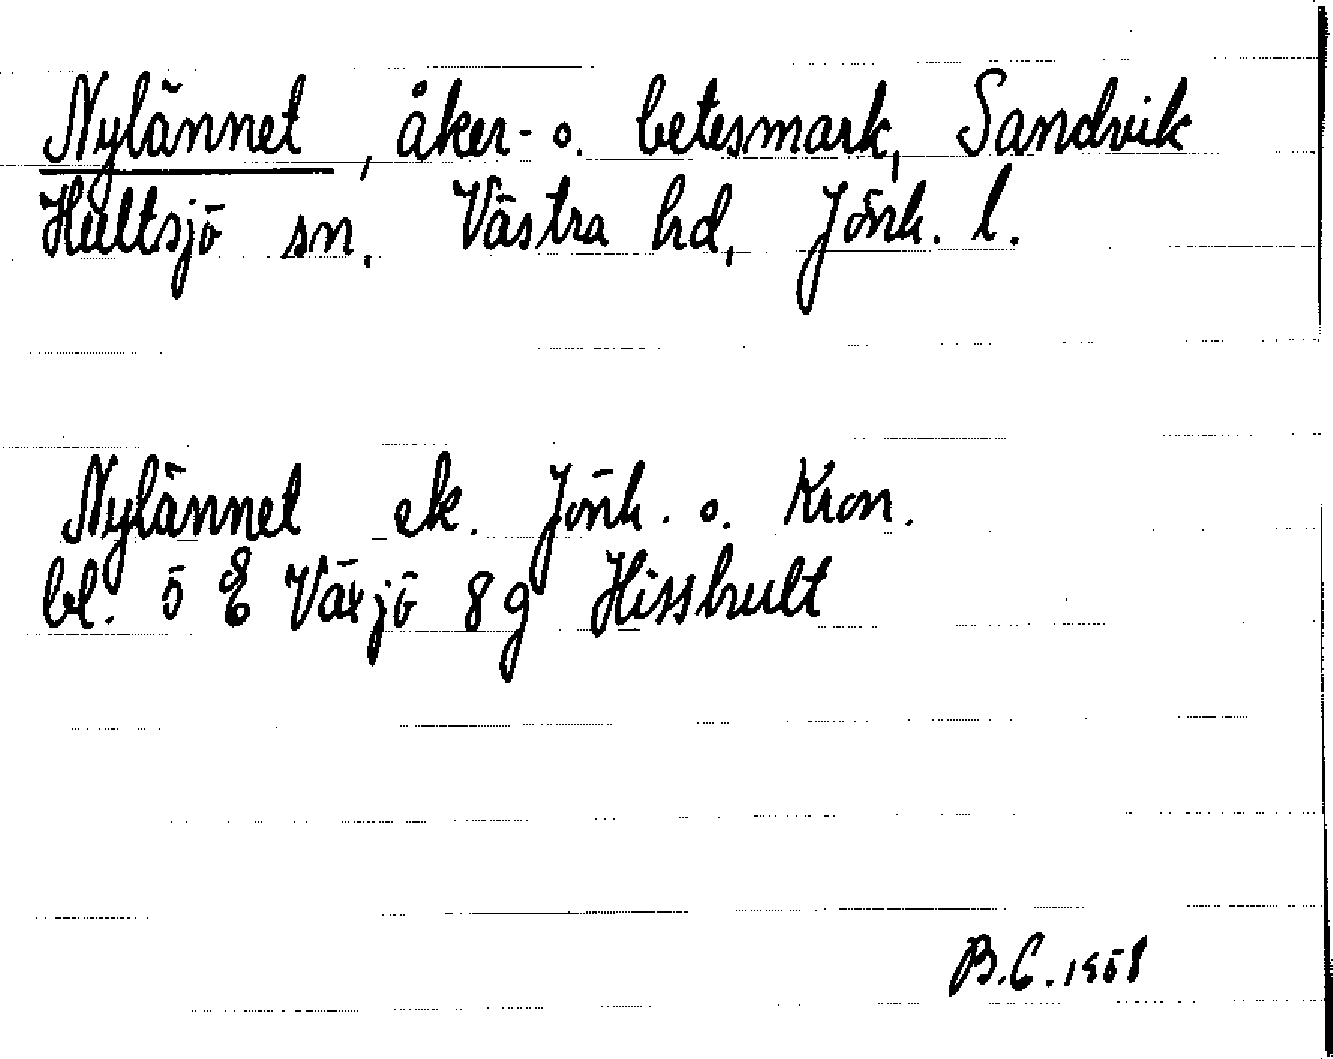 Nylännet, åker- o. betesmark, Sandvik
Hultsjö sn. Västra hd, Jönk. l.
Nylännet ek. Jönk. o. Kron.
bl. 5 E Växjö 8g Hisshult
B.C. 1958